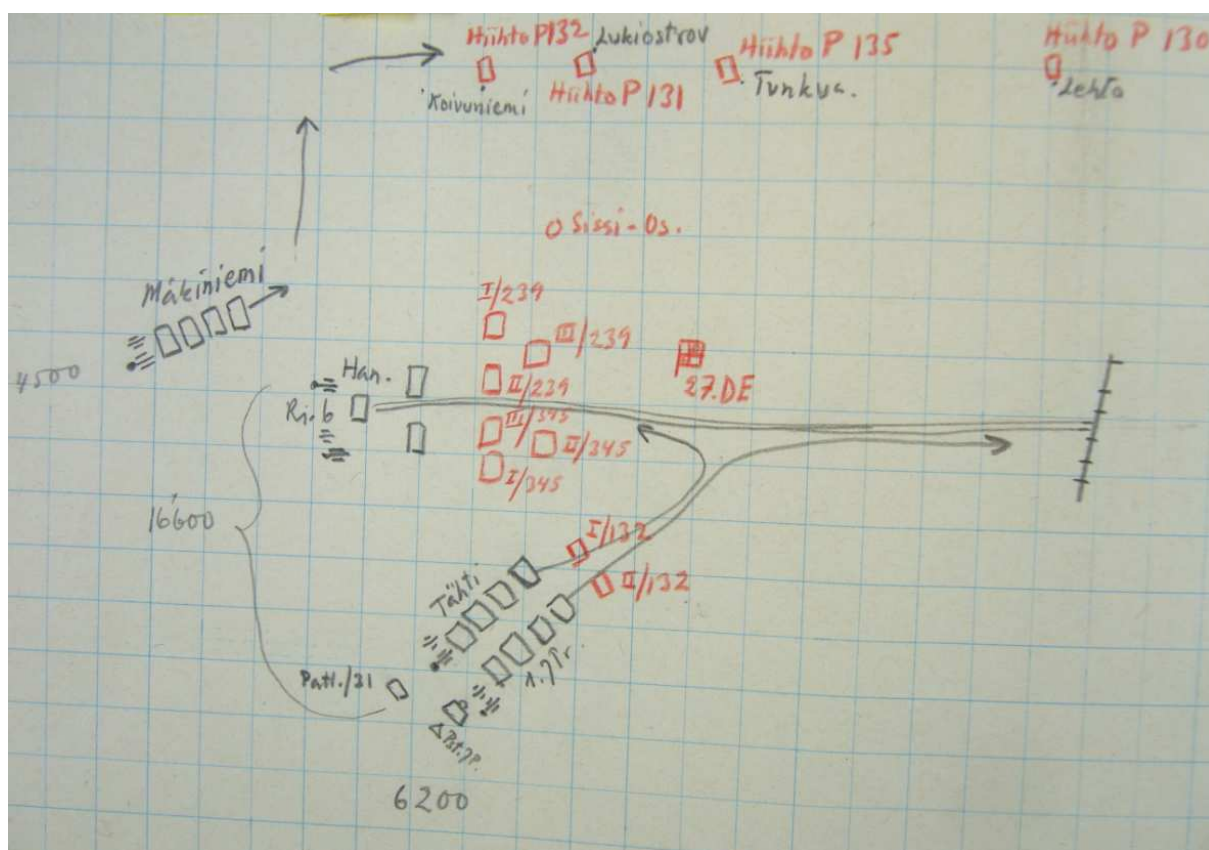 Hiihto P132
Lukiostrov
Hiihto P 135
Hiihto P 130
Koivuniemi
Hiihto P 131
Tunkua.
Lehto
Sissi-Os.
Mäkiniemi
I/239
III/239
4500
Han.
II/239
27.DE
Ri.6
III/345
II/345
I/345
16600
I/132
II/132
Tähti
1.JPr
Patl./31
6200